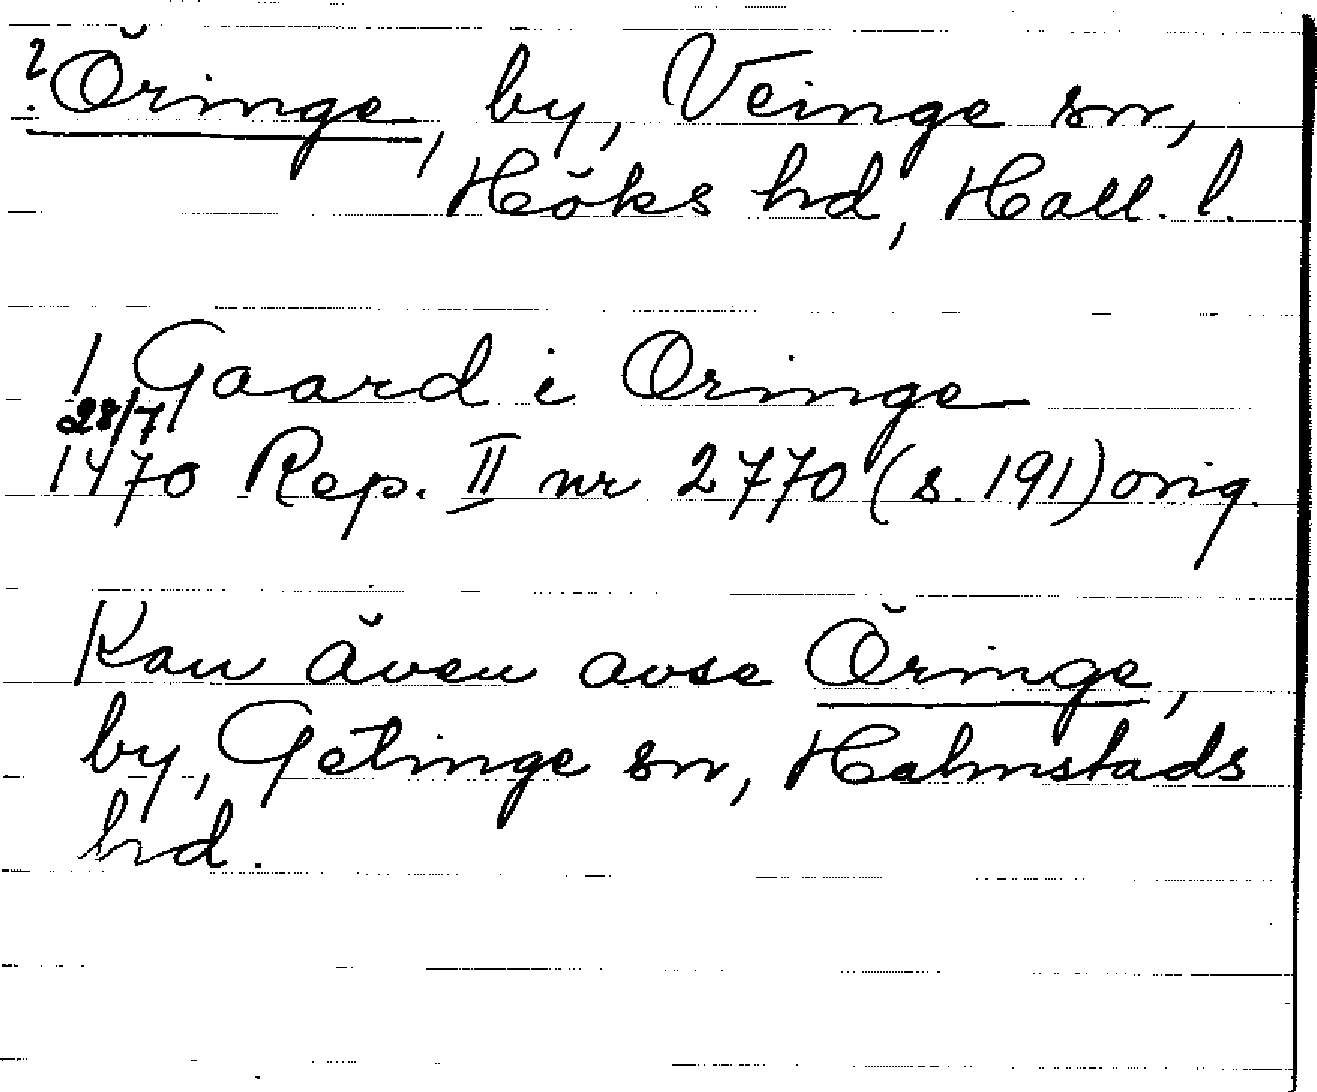 ? Öringe, by, Veinge sn,
Höks hd, Hall. l.
1 Gaard i Oringe
28/7
1470 Rep. II nr 2770 (s. 191) orig.
Kan även avse Öringe,
by, Getinge sn, Halmstads
hd.